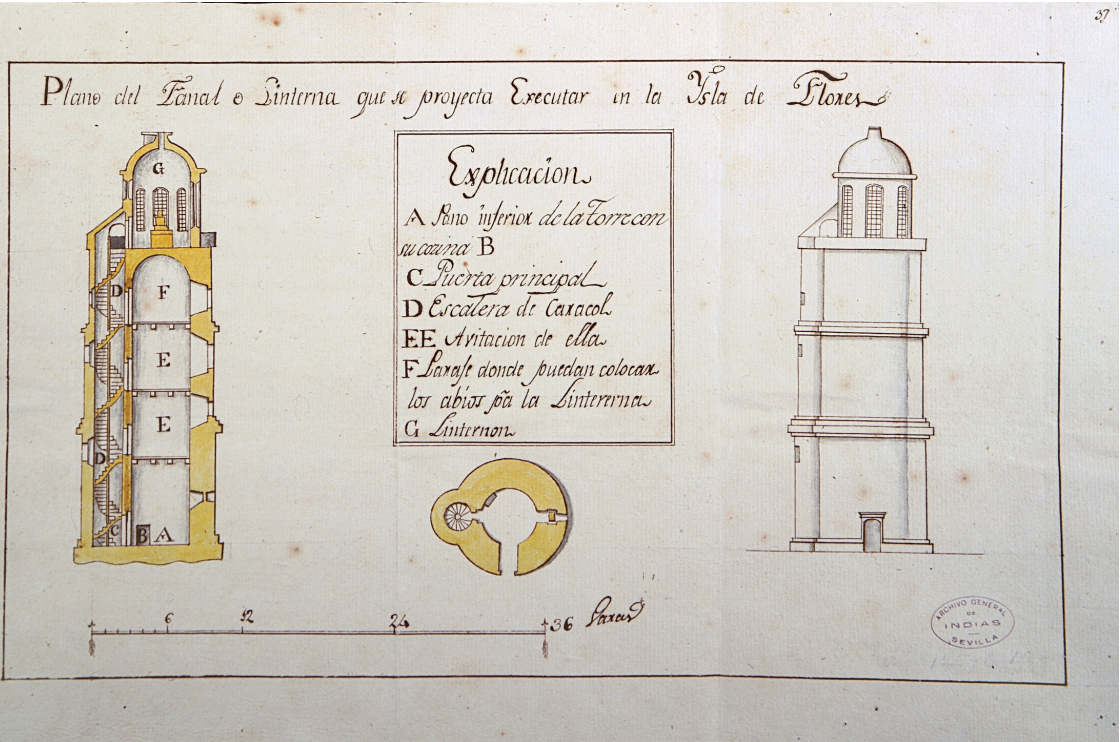 37
Plano del Fanal o Linterna que se proyecta Executar en la Ysla de Flores
Explicacion
A Piano inferior de la Torre con
su cozina B
C Puerta principal
D Escalera de Caracol
EE Avitacion de ella
F Paraje donde puedan colocar
los abios pa la Lintererna
G Linternon
G
D
F
E
E
D
C
B
A
6
12
24
36 Varas
ARCHIVO GENERAL
DE
INDIAS
SEVILLA